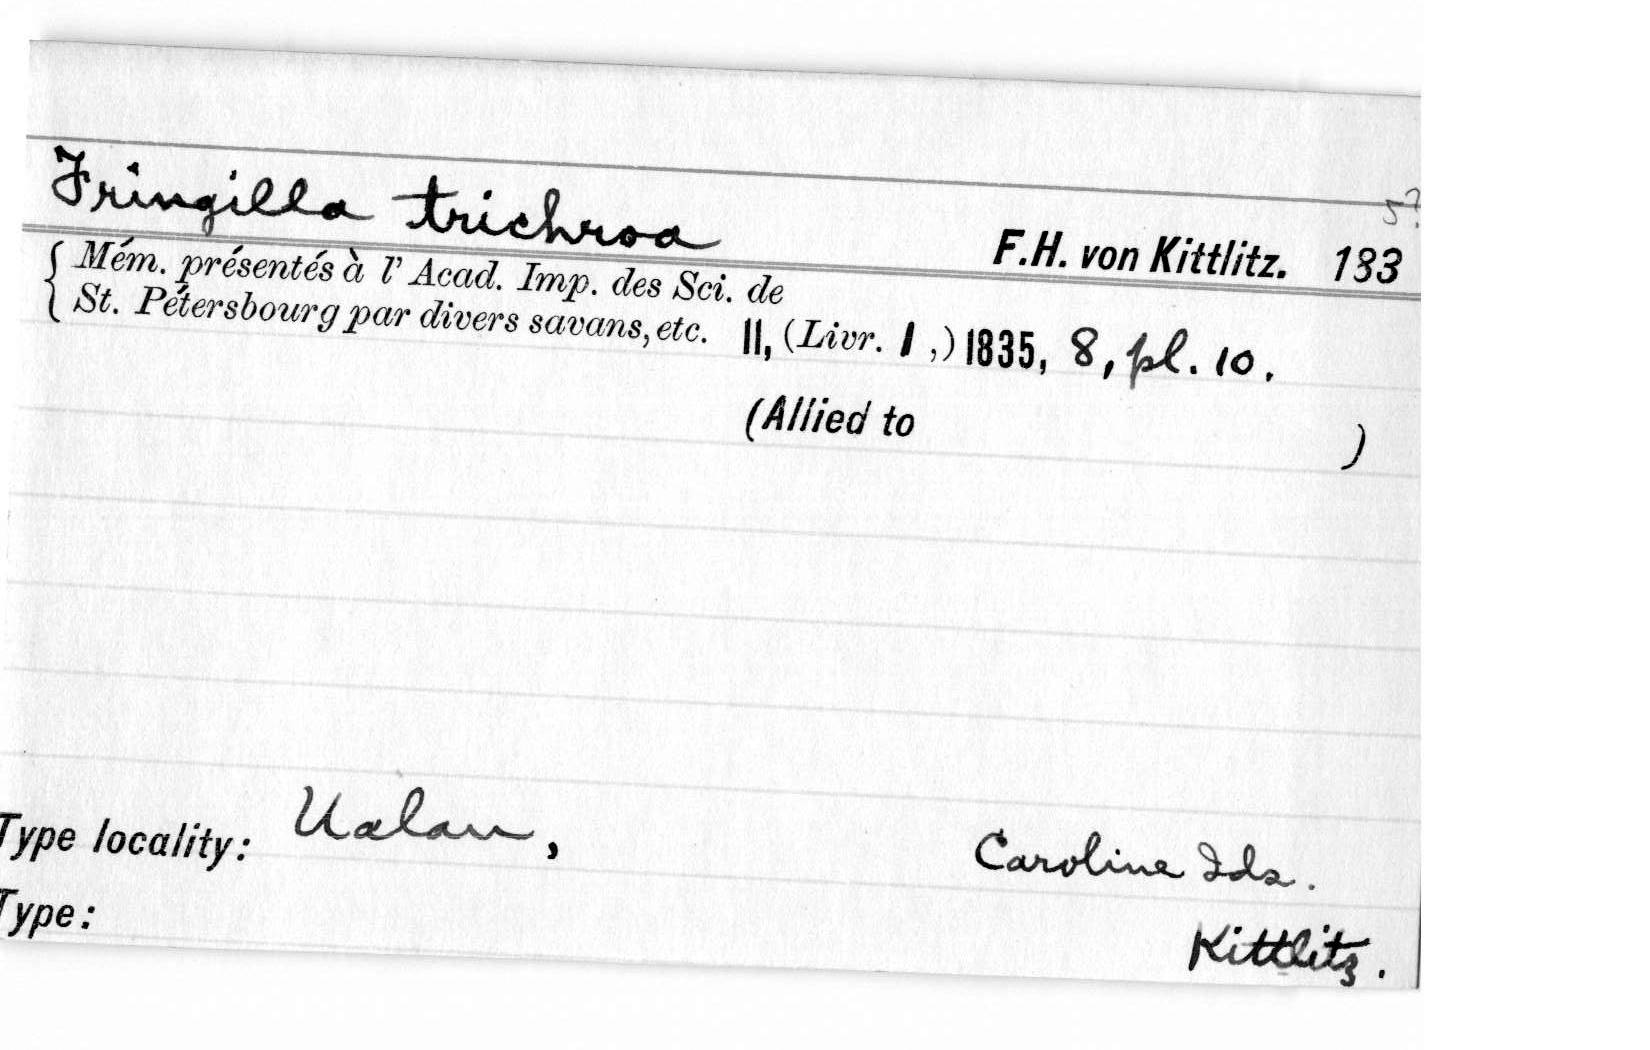 Fringilla trichroa
5?
F.H. von Kittlitz. 183
{ Mém. présentés à l' Acad. Imp. des Sci. de
St. Pétersbourg par divers savans, etc. II, (Livr. I ,) 1835, 8, pl. 10.
(Allied to )
Type locality: Ualan, Caroline Ids.
Type: Kittlitz.